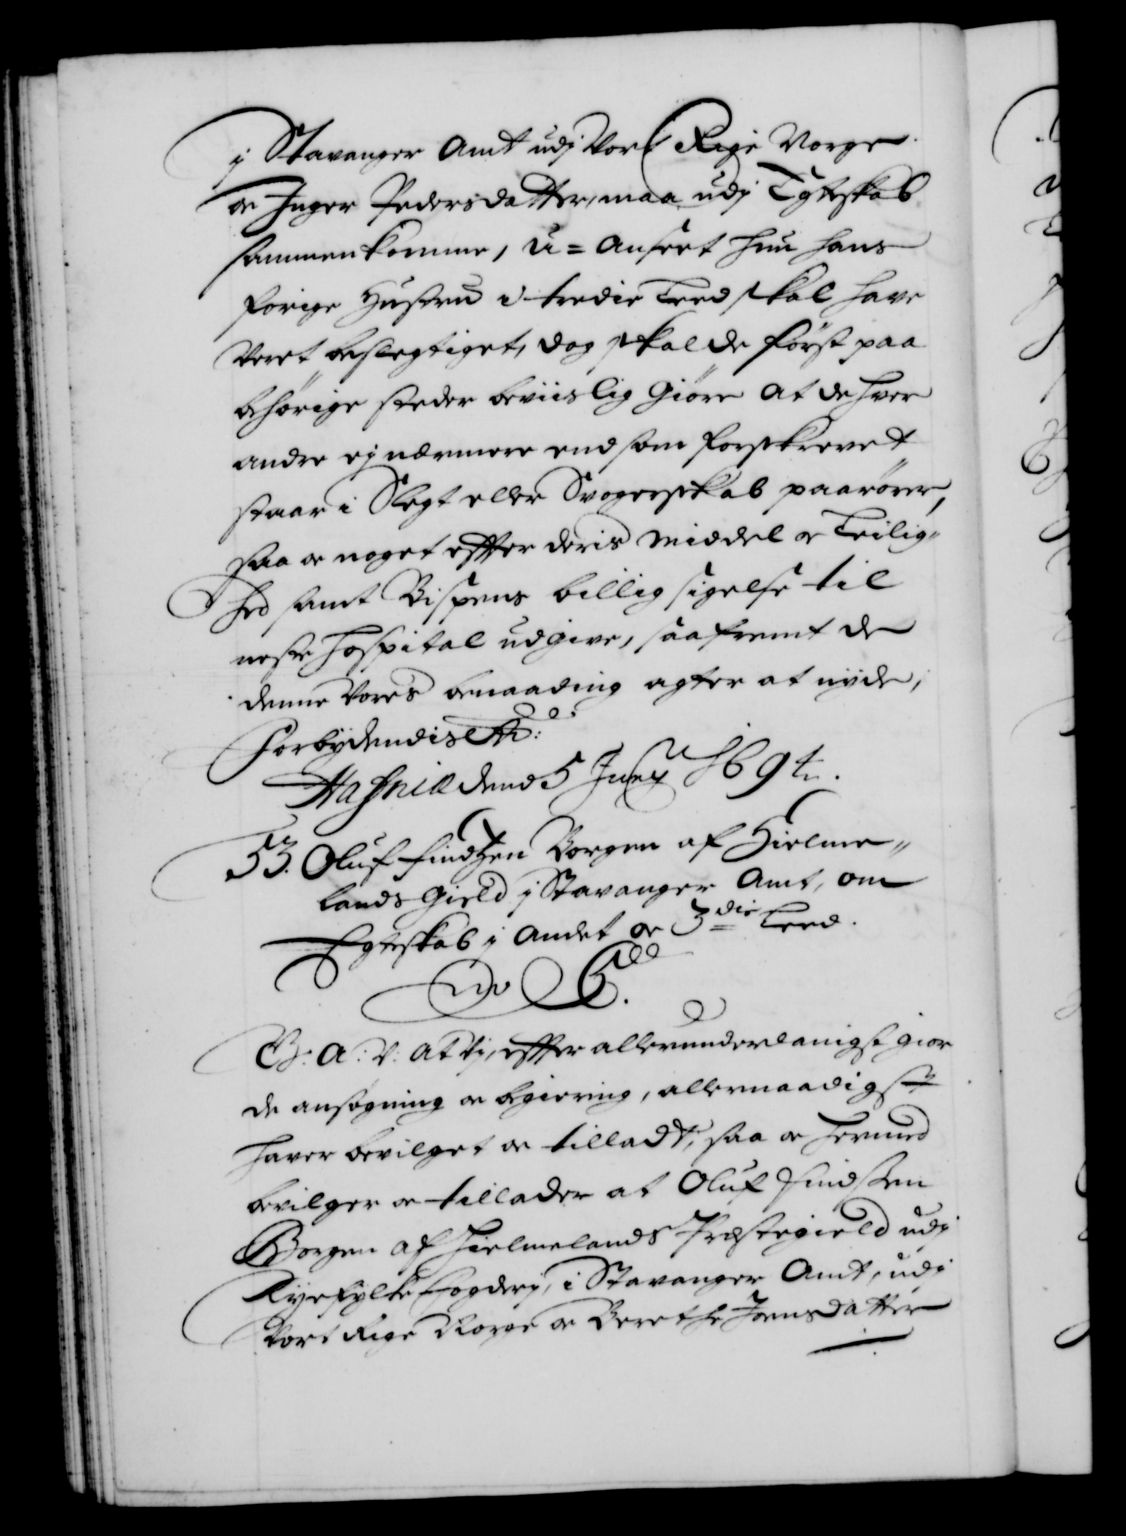 j Stavanger Amt udj Vort Rige Norge
oc Inger Pedersdatter, maa udj Egteskab
sammenkomme, u=anseet hun hans
forige Hustru i tredie Leed skal have
veret beslegtiget, dog skal de först paa
behörige steder beviislig giöre at de hver
andre ej nærmere end som forskrevet
staar i Slegt eller Svogerskab paarörer,
saa oc noget effter deris Middel oc Leilig-
hed samt Bispens billig sigelse til
neste Hospital udgive, saafremt de
denne Vores benaading agter at nyde,
Forbydendis etc:
Hafniæ dend 5 Junij 1694.
53. Oluf findtzen Borgen af Hielme-
lands Gield j Stavanger Amt, om
Egteskab j Andet oc 3die Leed.
C 5.
G: A: V: at Vi, effter allerunderdanigst gior
de ansögning oc begiering, allernaadigst
haver bevilget oc tilladt, saa oc hermed
bevilger oc tillader at Oluf Findtzen
Borgen af Hielmelands Præstegield udj
Ryefylke Fogderj, i Stavanger Amt, udj
Vort Rige Norge oc Berethe Joensdatter